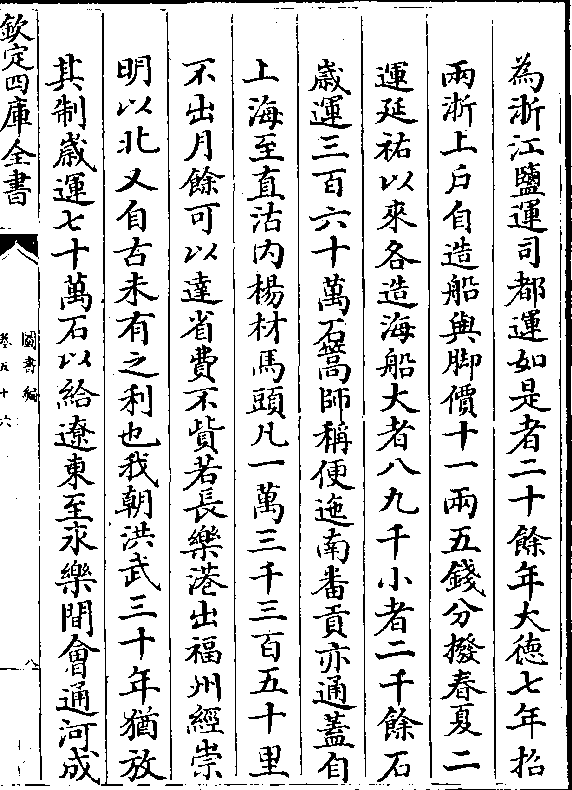 為浙江鹽運司都運如是者二十餘年大德七年招
兩浙上户自造船與脚價十一兩五錢分撥春夏二
運延祐以來各造海船大者八九千小者二千餘石
嵗運三百六十萬石篙師稱便迤南畨貢亦通蓋自
上海至直沽内楊村馬頭凡一萬三千三百五十里
不出月餘可以達省費不貲若長樂港出福州經崇
明以北又自古未有之利也我朝洪武三十年猶放
其制嵗運七十萬石以給遼東至永樂間會通河成
欽定四庫全書
圖書編
卷五十六
八